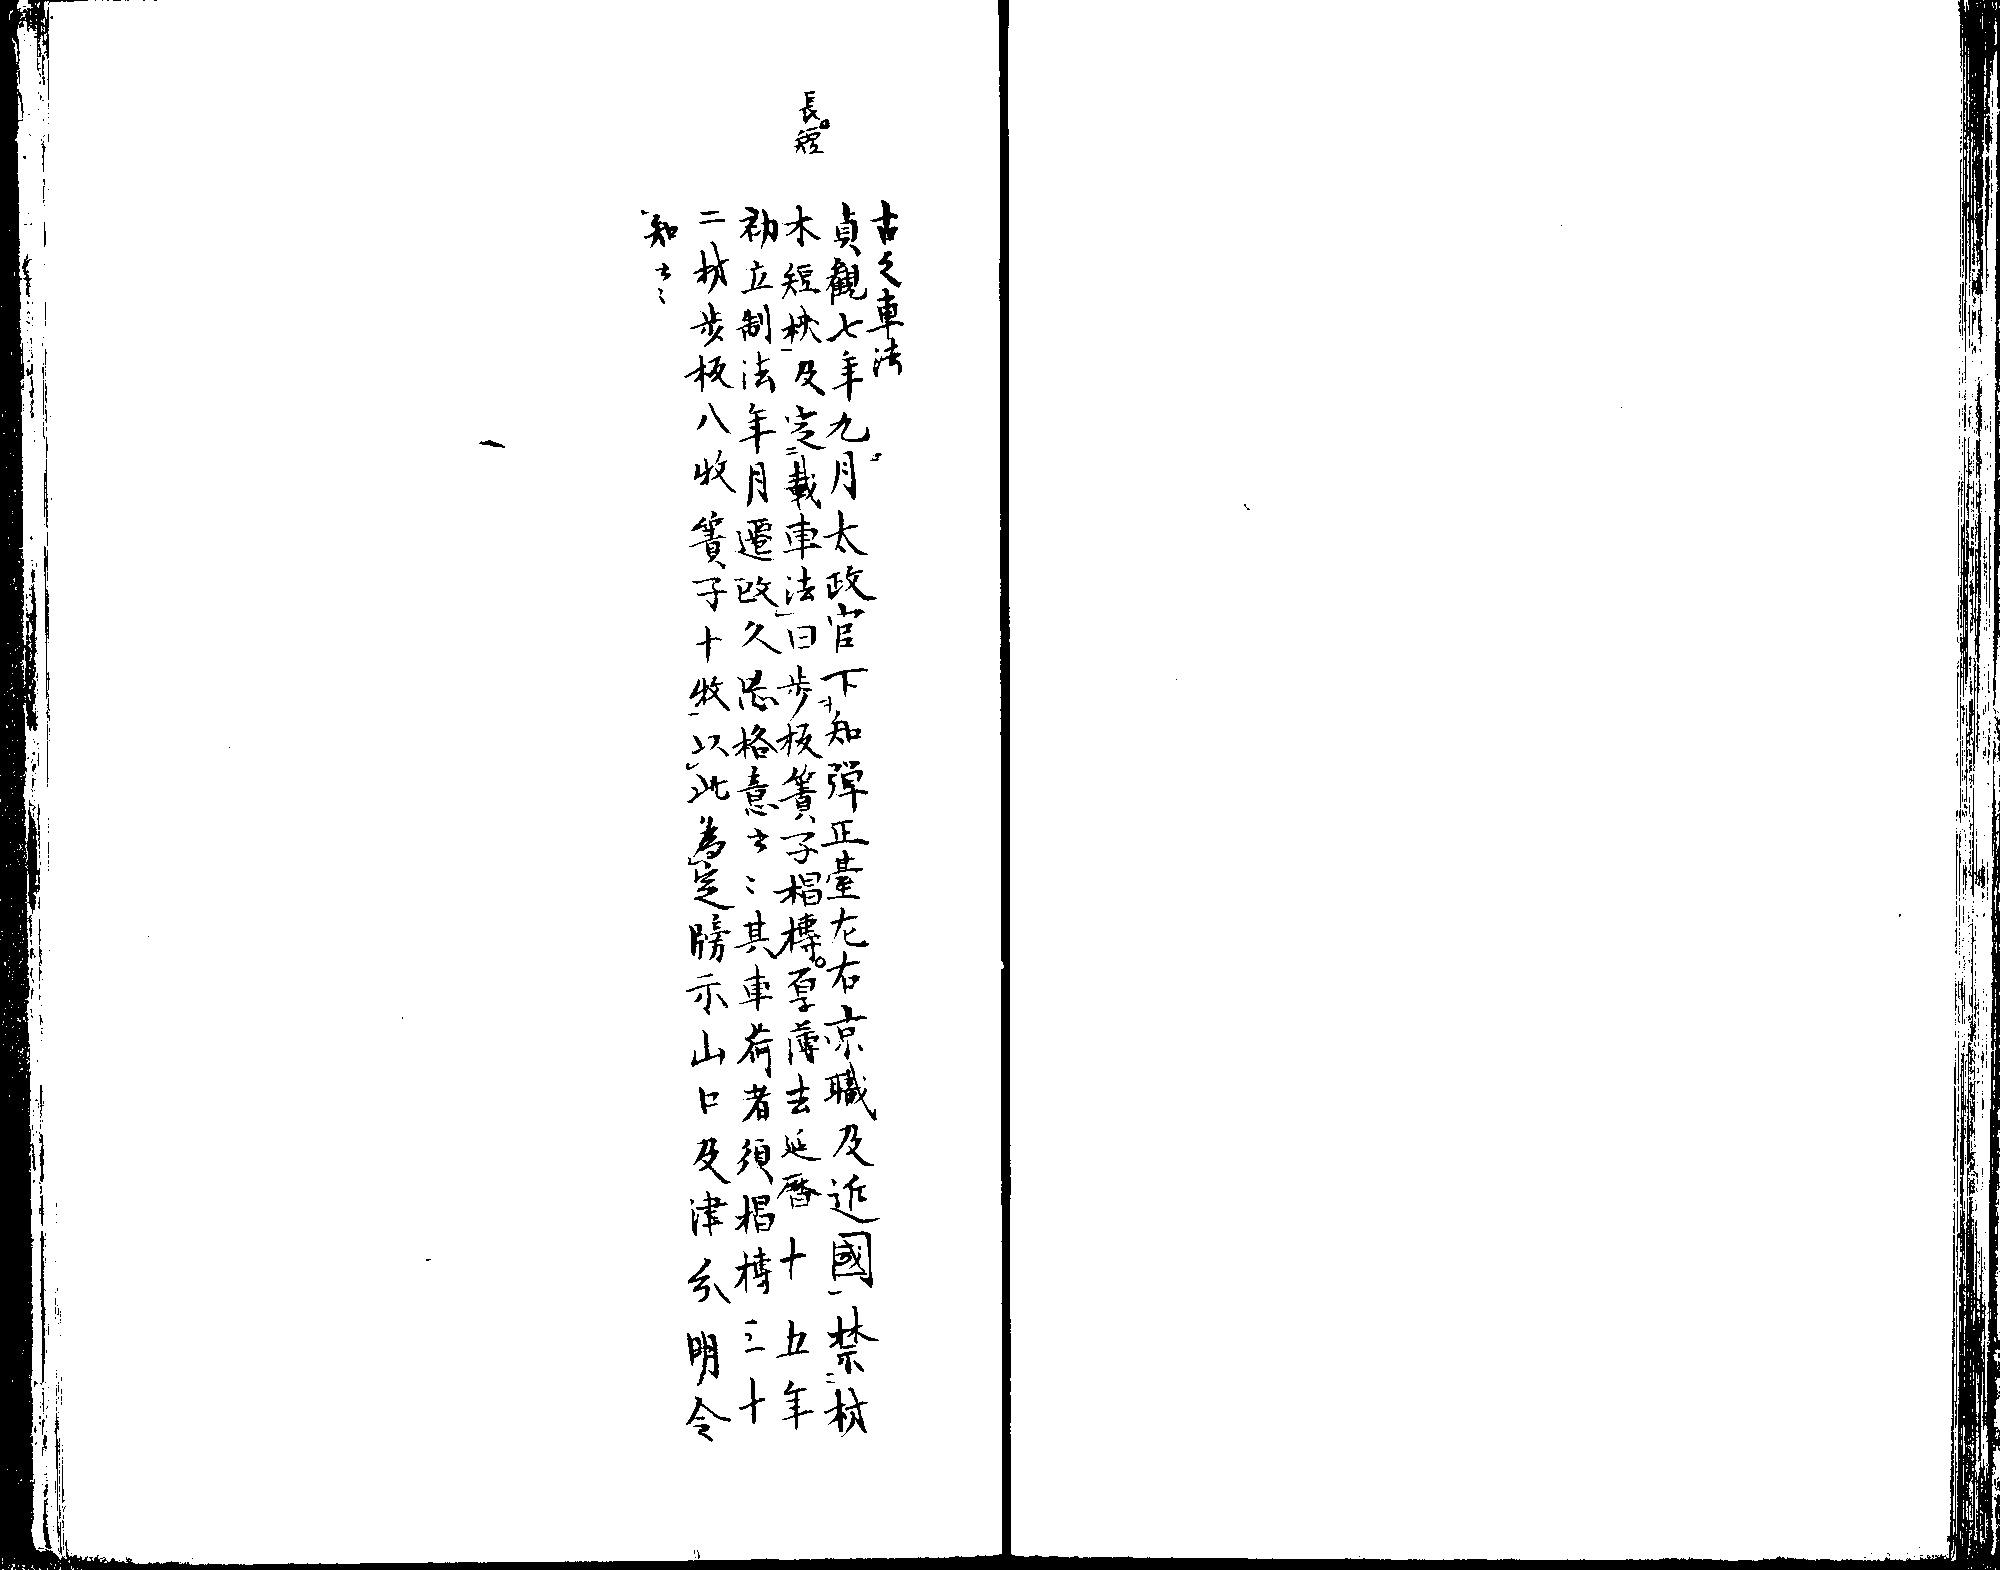 長短
古之車法
貞觀七年九月太政官下知彈正臺左右京職及近國禁材
木短狹及定載車法曰步板簀子榲榑厚薄去延曆十五年
初立制法年月遷改久忘格意云〻其車荷者須榲榑三十
二材步板八枚簀子十枚以此為定牓示山口及津分明令
知云〻